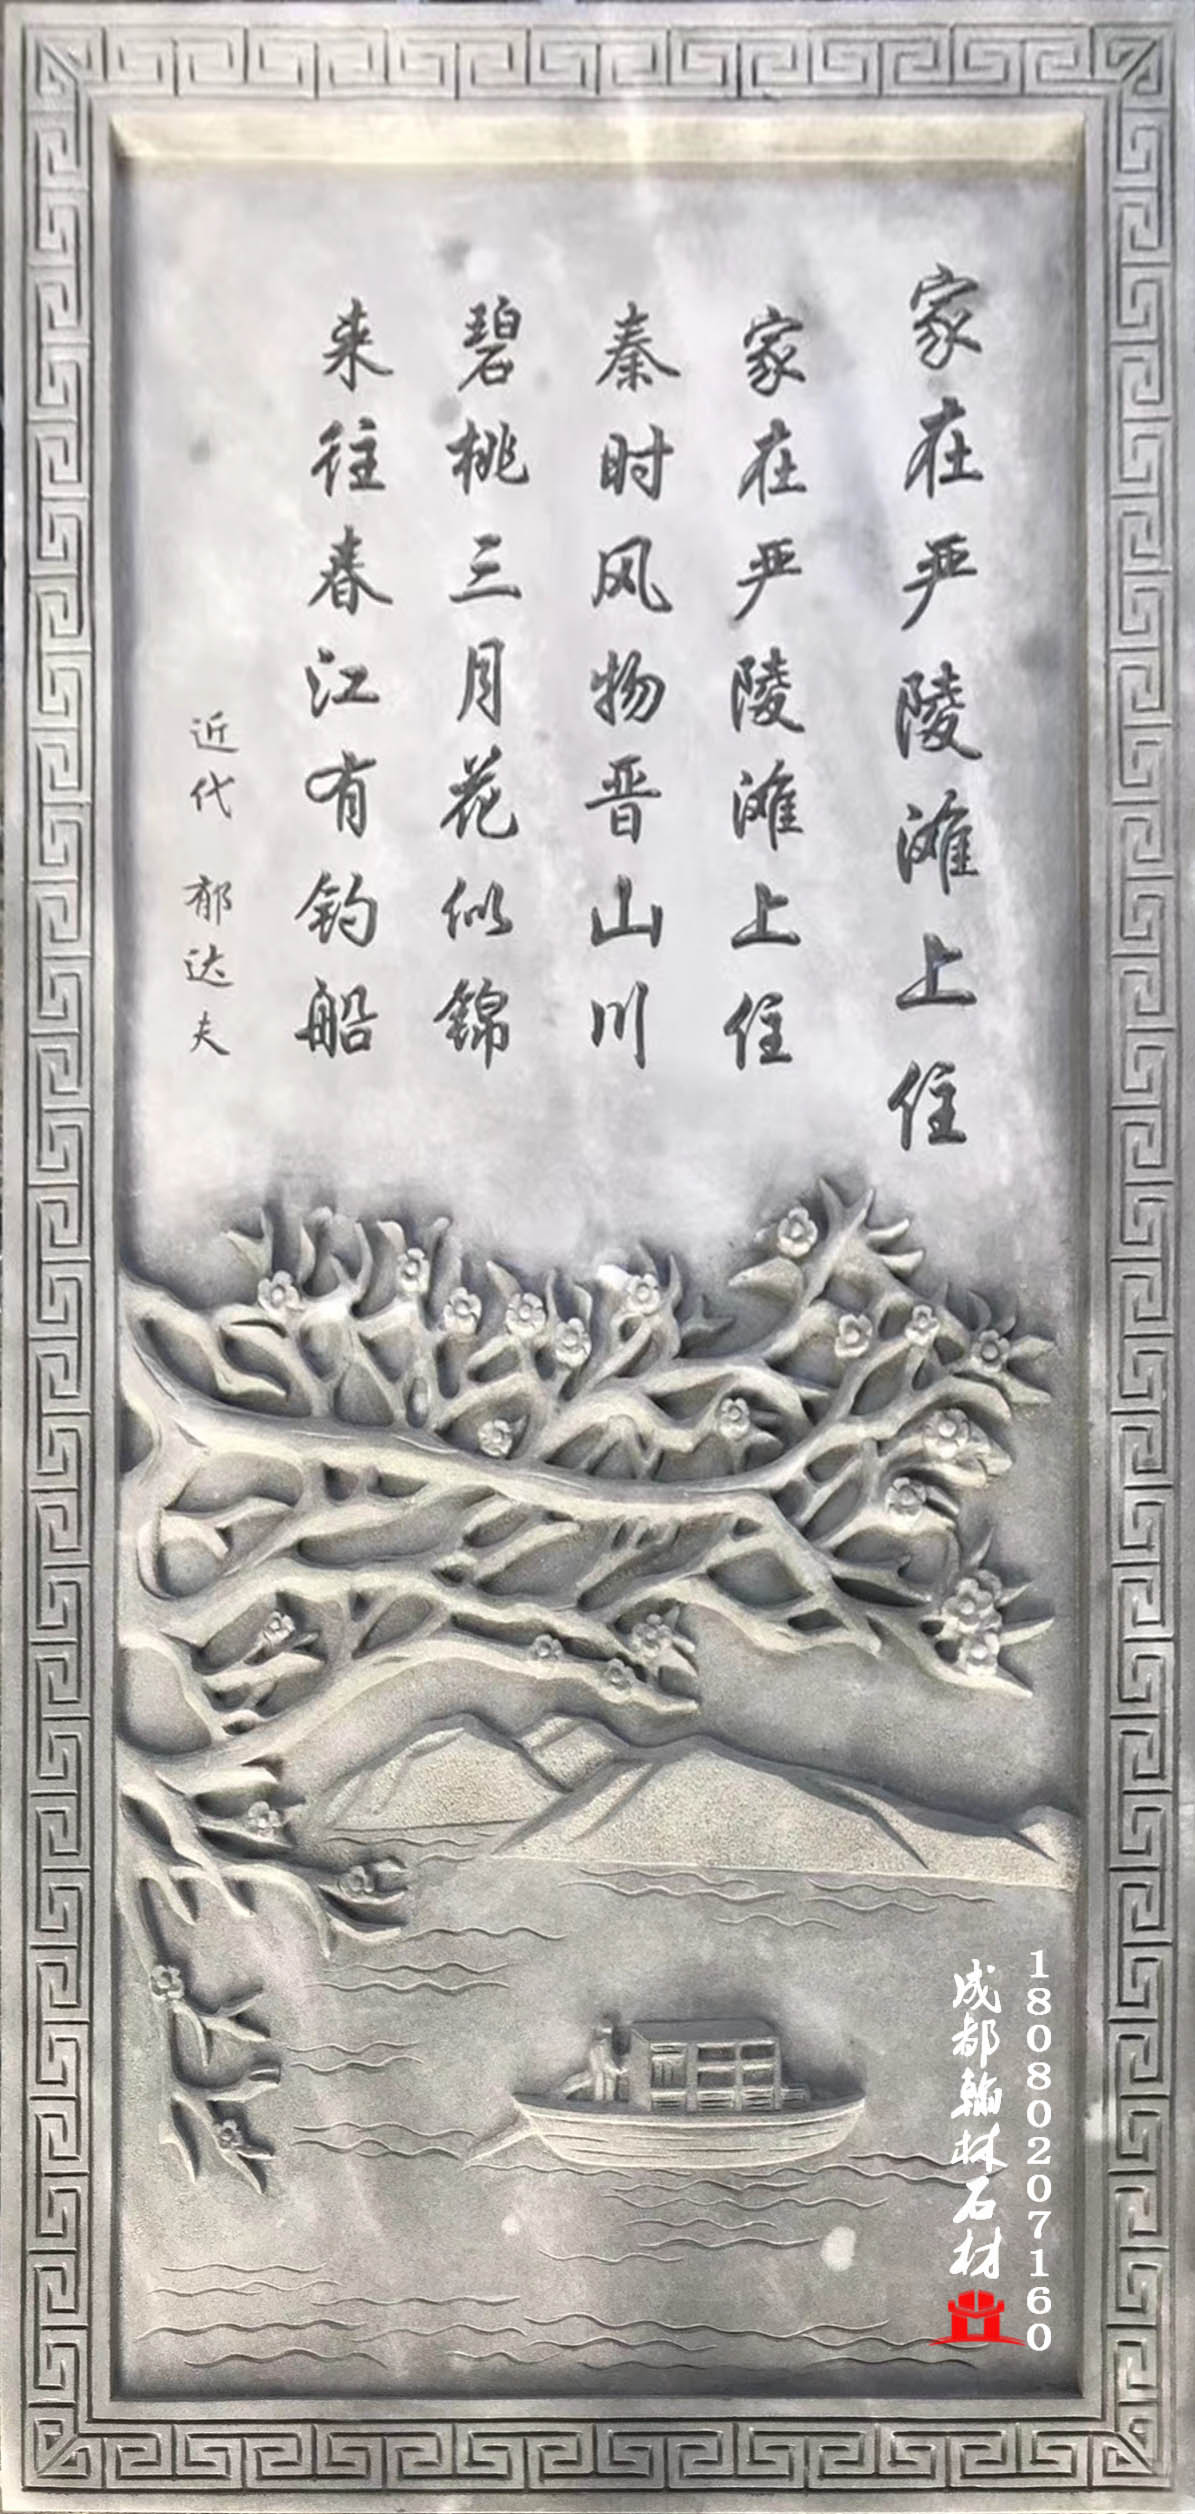 家在严陵滩上住
家在严陵滩上住
秦时风物晋山川
碧桃三月花似錦
来往春江有钓船
近代 郁达夫
18080207160
成都翰林石材